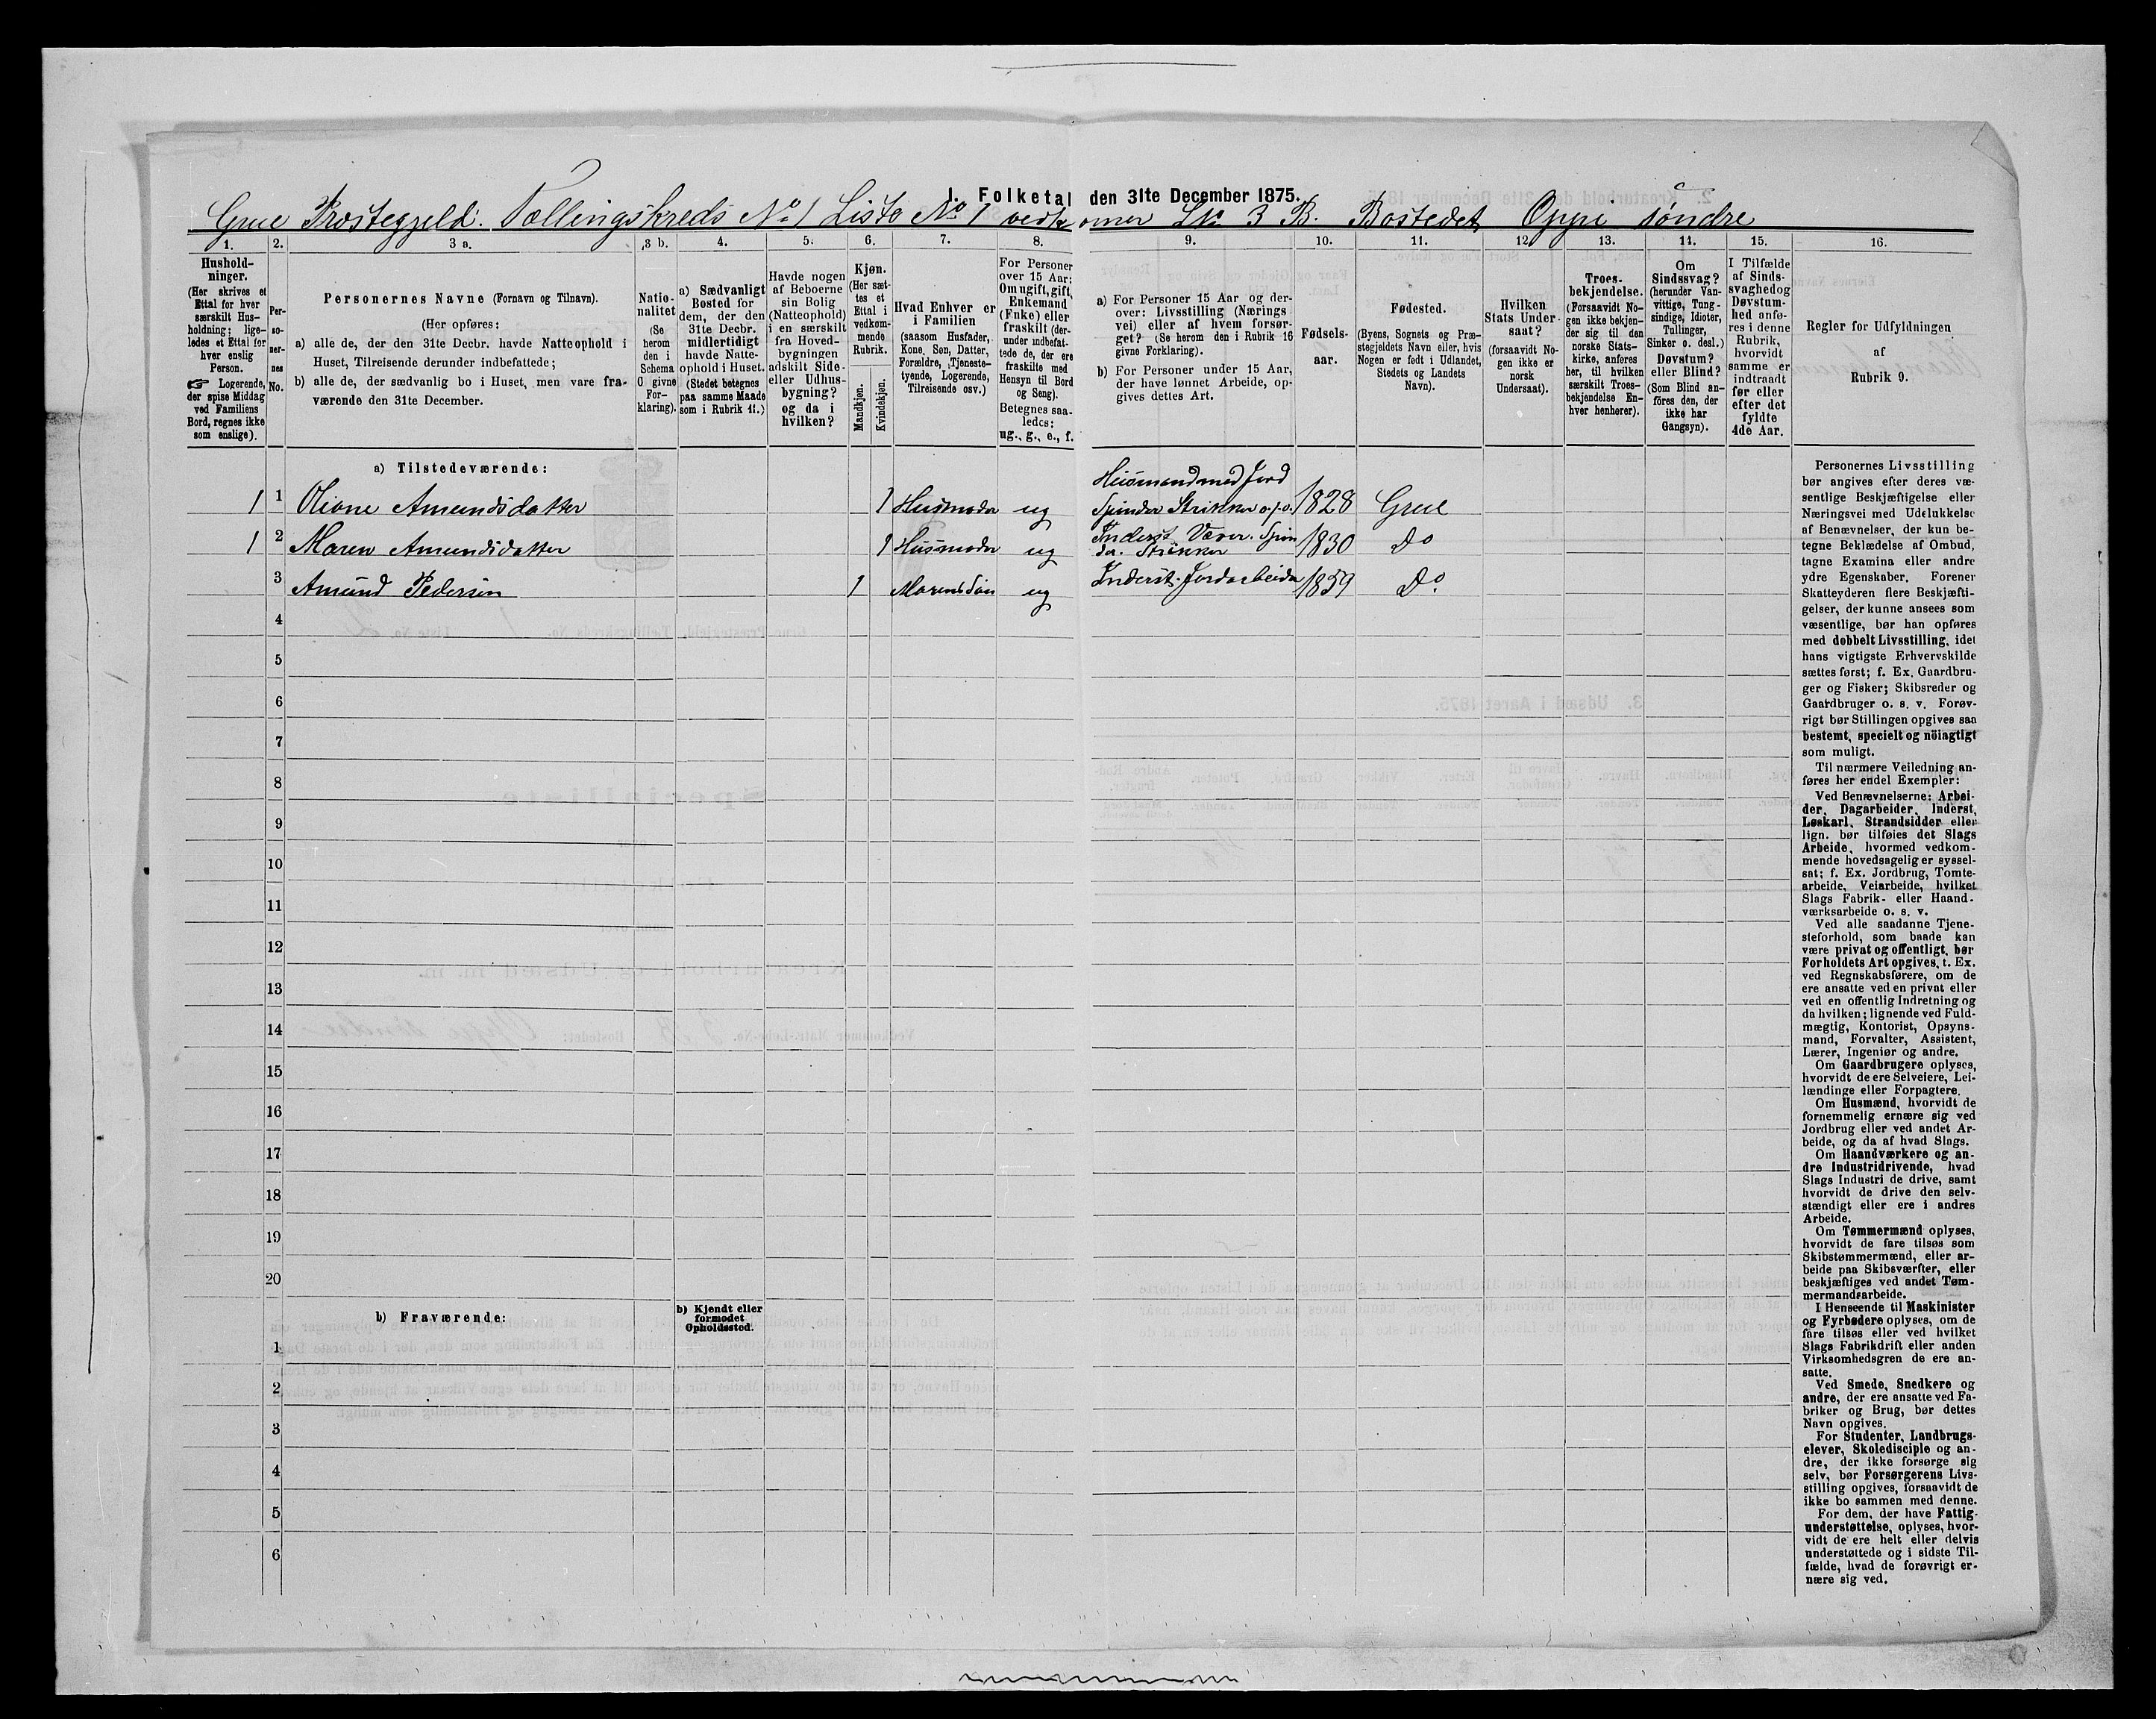 1. Folketal den 31te December 1875.
Grue Præstegjeld. Tællingskreds No 1 Liste No 1 vedkommer LNo 3 B. Bostedet Oppi søndre
1. 2. 3 a. 3 b. 4. 5. 6. 7. 8. 9. 10. 11. 12. 13. 14. 15. 16.
Hushold-
ninger.
(Her skrives et
Ettal for hver
særskilt Hus-
holdning; lige-
ledes et Ettal for
hver enslig
Person.
☞ Logerende,
der spise Middag
ved Familiens
Bord, regnes ikke
som enslige).
Per-
so-
ner-
nes
No.
Personernes Navne (Fornavn og Tilnavn).
(Her opføres:
a) alle de, der den 31te Decbr. havde Natteophold i
Huset, Tilreisende derunder indbefattede;
b) alle de, der sædvanlig bo i Huset, men vare fra-
værende den 31te December.
Natio-
nalitet
(Se
herom
den i
Schema
O givne
For-
klaring).
a) Sædvanligt
Bosted for
dem, der den
31te Decbr.
midlertidigt
havde Natte-
ophold i Huset.
(Stedet betegnes
paa samme Maade
som i Rubrik 11.)
Havde nogen
af Beboerne
sin Bolig
(Natteophold)
i en særskilt
fra Hoved-
bygningen
adskilt Side-
eller Udhus-
bygning?
og da i
hvilken?
Kjøn.
(Her sæt-
tes et
Ettal i
vedkom-
mende
Rubrik.
Mandkjøn.
Kvindekjøn.
Hvad Enhver er
i Familien
(saasom Husfader,
Kone, Søn, Datter,
Forældre, Tjeneste-
tyende, Logerende,
Tilreisende osv.)
For Personer
over 15 Aar:
Om ugift, gift,
Enkemand
(Enke) eller
fraskilt (der-
under indbefat-
tede de, der ere
fraskilte med
Hensyn til Bord
og Seng).
Betegnes saa-
ledes:
ug., g., e., f.
a) For Personer 15 Aar og der-
over: Livsstilling (Nærings
vei) eller af hvem forsør-
get? (Se herom den i Rubrik 16
givne Forklaring).
b) For Personer under 15 Aar,
der have lønnet Arbeide, op-
gives dettes Art.
Fødsels-
aar.
Fødested.
(Byens, Sognets og Præ-
stegjeldets Navn eller, hvis
Nogen er født i Udlandet,
Stedets og Landets
Navn).
Hvilken
Stats Under-
saat?
(forsaavidt No-
gen ikke er
norsk
Undersaat).
Troes-
bekjendelse.
(Forsaavidt No-
gen ikke bekjen-
der sig til den
norske Stats-
kirke, anføres
her, til hvilken
særskilt Troes-
bekjendelse En-
hver henhører).
Om
Sindssvag?
(herunder Van-
vittige, Tung-
sindige, Idioter,
Tullinger,
Sinker o. desl.)
Døvstum?
eller Blind?
(Som Blind an-
føres den, der
ikke har
Gangsyn).
I Tilfælde
af Sinds-
svaghed og
Døvstum-
hed anfø-
res i denne
Rubrik,
hvorvidt
samme er
indtraadt
før eller
efter det
fyldte
4de Aar.
Regler for Udfyldningen
af
Rubrik 9.
a) Tilstedeværende:
Husmand med Jord
1 1 Oliane Amundsdatter 1 Husmoder ug Spinder Strikker o.j.o. 1828 Grue
1 2 Maren Amundsdatter 1 Husmoder ug Inderst Væver. Spin
der. Strikker 1830 Do
3 Amund Pedersen 1 Marens Søn ug Inderst. Jordarbeider 1859 Do.
4
5
6
7
8
9
10
11
12
13
14
15
16
17
18
19
20
b) Fraværende:
b) Kjendt eller
formodet
Opholdssted.
1
2
3
4
5
6
Personernes Livsstilling
bør angives efter deres væ-
sentlige Beskjæftigelse eller
Næringsvei med Udelukkelse
af Benævnelser, der kun be-
tegne Beklædelse af Ombud,
tagne Examina eller andre
ydre Egenskaber. Forener
Skatteyderen flere Beskjæfti-
gelser, der kunne ansees som
væsentlige, bør han opføres
med dobbelt Livsstilling, idet
hans vigtigste Erhvervskilde
sættes først; f. Ex. Gaardbru-
ger og Fisker; Skibsreder og
Gaardbruger o. s. v. Forøv-
rigt bør Stillingen opgives saa
bestemt, specielt og nöiagtigt
som muligt.
Til nærmere Veiledning an-
føres her endel Exempler:
Ved Benævnelserne: Arbei-
der, Dagarbeider, Inderst,
Løskarl, Strandsidder eller
lign. bør tilføies det Slags
Arbeide, hvormed vedkom-
mende hovedsagelig er syssel-
sat; f. Ex. Jordbrug, Tomte-
arbeide, Veiarbeide, hvilket
Slags Fabrik- eller Haand-
værksarbeide o. s. v.
Ved alle saadanne Tjene-
steforhold, som baade kan
være privat og offentligt, bør
Forholdets Art opgives, t. Ex.
ved Regnskabsførere, om de
ere ansatte ved en privat eller
ved en offentlig Indretning og
da hvilken; lignende ved Fuld-
mægtig, Kontorist, Opsyns-
mand, Forvalter, Assistent,
Lærer, Ingeniør og andre.
Om Gaardbrugere oplyses,
hvorvidt de ere Selveiere, Lei-
lændinge eller Forpagtere.
Om Husmænd, hvorvidt de
fornemmelig ernære sig ved
Jordbrug eller ved andet Ar-
beide, og da af hvad Slags.
Om Haandværkere og an-
dre Industridrivende, hvad
Slags Industri de drive, samt
hvorvidt de drive den selv-
stændigt eller ere i andres
Arbeide.
Om Tømmermænd oplyses,
hvorvidt de fare tilsøs som
Skibstømmermænd, eller ar-
beide paa Skibsværfter, eller
beskjæftiges ved andet Tøm-
mermandsarbeide.
I Henseende til Maskinister
og Fyrbødere oplyses, om de
fare tilsøs eller ved hvilket
Slags Fabrikdrift eller anden
Virksomhedsgren de ere an-
satte.
Ved Smede, Snedkere og
andre, der ere ansatte ved Fa-
briker og Brug, bør dettes
Navn opgives.
For Studenter, Landbrugs-
elever, Skoledisciple og an-
dre, der ikke forsørge sig
selv, bør Forsørgerens Livs-
stilling opgives, forsaavidt de
ikke bo sammen med denne.
For dem, der have Fattig-
understøttelse, oplyses, hvor-
vidt de ere helt eller delvis
understøttede og i sidste Til-
fælde, hvad de forøvrigt er-
nære sig ved.